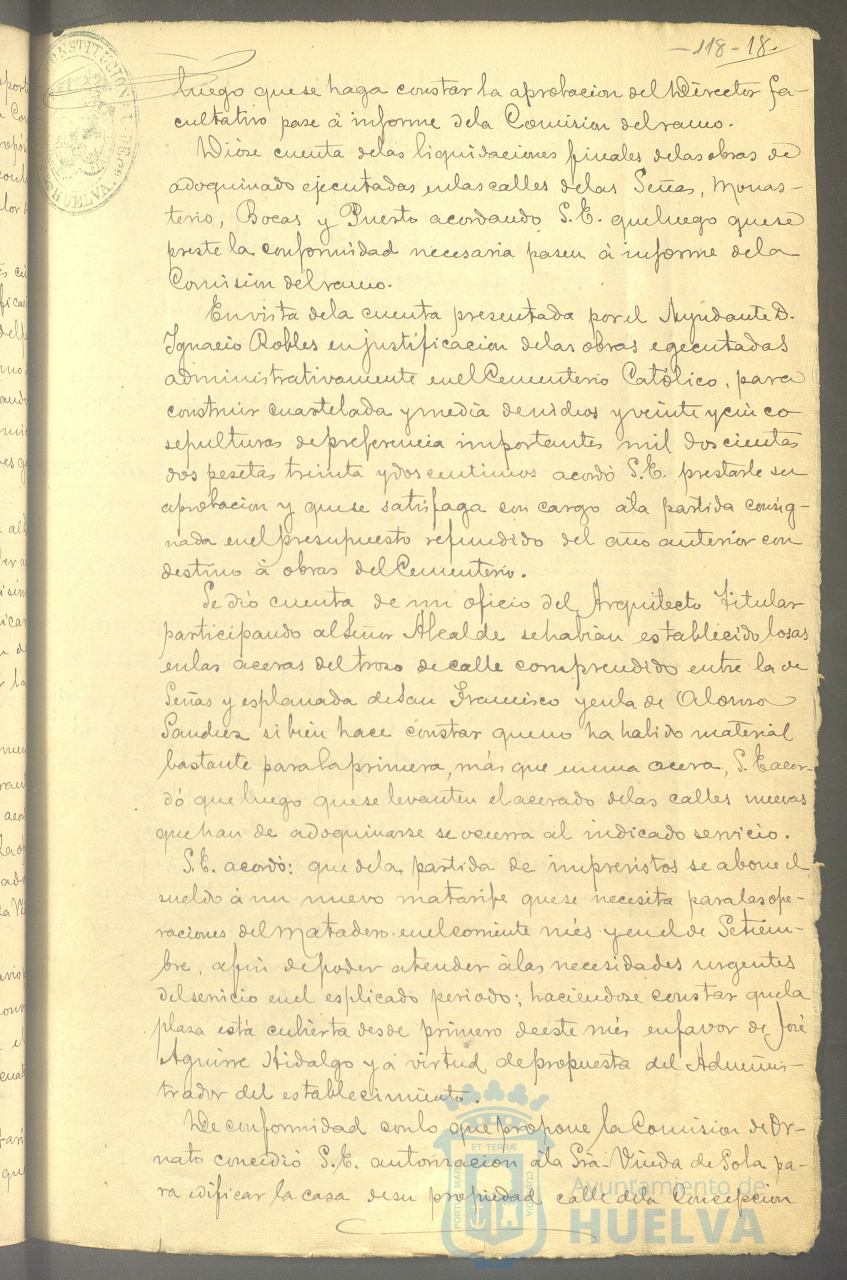 -118- 18.
CONSTITUCIONAL DE
HUELVA
luego que se haga constar la aprobacion del Director fa-
cultativo pase á informe de la Comision del ramo.
Dióse cuenta de las liquidaciones finales de las obras de
adoquinado ejecutadas en las calles de las Señas, Monas-
terio, Bocas y Puerto acordando S.E. que luego que se
preste la conformidad necesaria pasen á informe de la
Comision del ramo.
En vista de la cuenta presentada por el Ayudante D.
Ignacio Robles en justificacion de las obras egecutadas
administrativamente en el Cementerio Católico, para
construir cuartelada y media de nichos y veinte y cinco
sepulturas de preferencia importantes mil doscientas
dos pesetas treinta y dos centimos acordó S.E. prestarle su
aprobacion y que se satisfaga con cargo á la partida consig-
nada en el presupuesto refundido del año anterior con
destino á obras del Cementerio.
Se dió cuenta de un oficio del Arquitecto titular
participando al Señor Alcalde se habian establecido losas
en las aceras del trozo de calle comprendido entre la de
Señas y esplanada de San Francisco y en la de Alonso
Sanchez si bien hace constar que no ha habido material
bastante para la primera, más que en una acera, S.E. acor-
dó que luego que se levanten el acerado de las calles nuevas
que han de adoquinarse se ocurra al indicado servicio.
S.E. acordó: que de la partida de imprevistos se abone el
sueldo á un nuevo matarife que se necesita para las ope-
raciones del Matadero en el corriente mes y en el de Setiem-
bre, a fin de poder atender á las necesidades urgentes
del servicio en el esplicado periodo; haciendose constar que la
plaza está cubierta desde primero de este mes en favor de José
Aguirre Hidalgo y á virtud de propuesta del Adminis-
trador del establecimiento.
De conformidad con lo que propone la Comision de Or-
nato concedió S.E. autorizacion á la Srâ. Viuda de Sola pa-
ra edificar la casa de su propiedad calle de la Concepcion
Ayuntamiento de
HUELVA